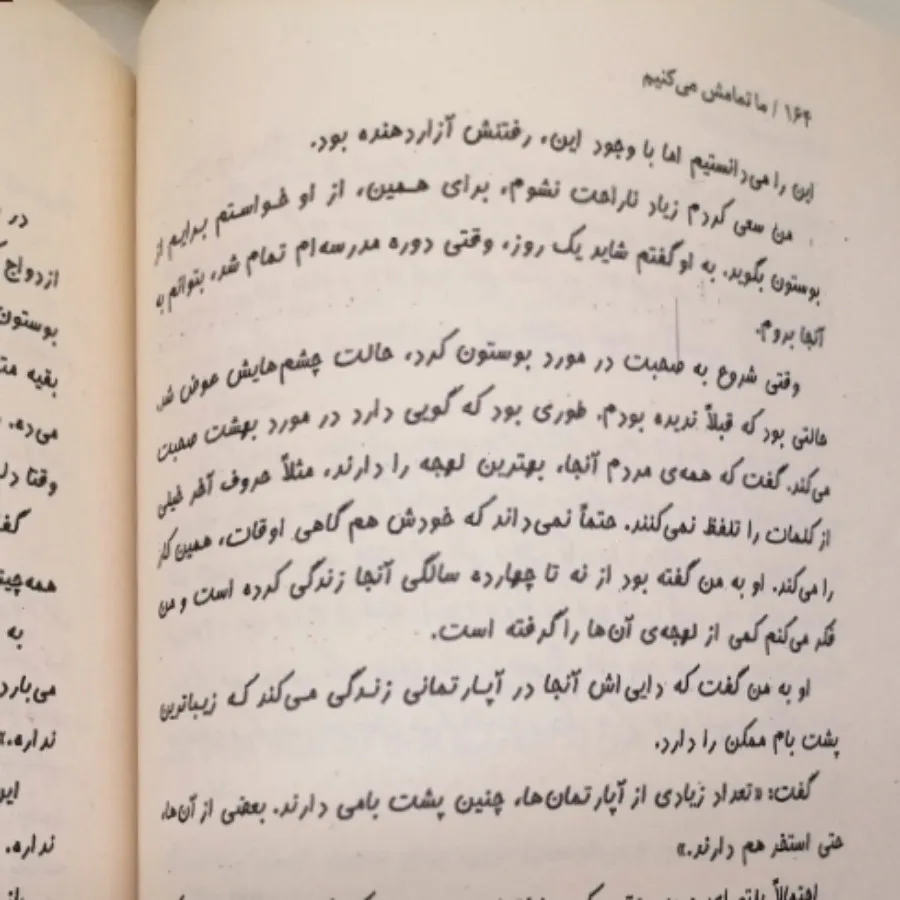 ۱۶۴ / ما تمامش می‌کنیم
این را می‌دانستیم اما با وجود این، رفتنش آزاردهنده بود.
من سعی کردم زیاد ناراحت نشوم، برای همین، از او خواستم برایم از
بوستون بگوید. به او گفتم شاید یک روز، وقتی دوره مدرسه‌ام تمام شد، بتوانم به
آنجا بروم.
وقتی شروع به صحبت در مورد بوستون کرد، حالت چشم‌هایش عوض شد.
حالتی بود که قبلاً ندیده بودم. طوری بود که گویی دارد در مورد بهشت صحبت
می‌کند. گفت که همه‌ی مردم آنجا، بهترین لهجه را دارند، مثلاً حروف آخر خیلی
از کلمات را تلفظ نمی‌کنند. حتماً نمی‌داند که خودش هم گاهی اوقات، همین کار
را می‌کند. او به من گفته بود از نه تا چهارده سالگی آنجا زندگی کرده است و من
فکر می‌کنم کمی از لهجه‌ی آن‌ها را گرفته است.
او به من گفت که دایی‌اش آنجا در آپارتمانی زندگی می‌کند که زیباترین
پشت بام ممکن را دارد.
گفت: «تعداد زیادی از آپارتمان‌ها، چنین پشت بامی دارند. بعضی از آن‌ها،
حتی استخر هم دارند.»
احتمالاً
در
ازدواج
بوستون
بقیه
می‌ده.
وقتا
همه‌چیز
به
می‌بارد
نداره.»
این
نداره.